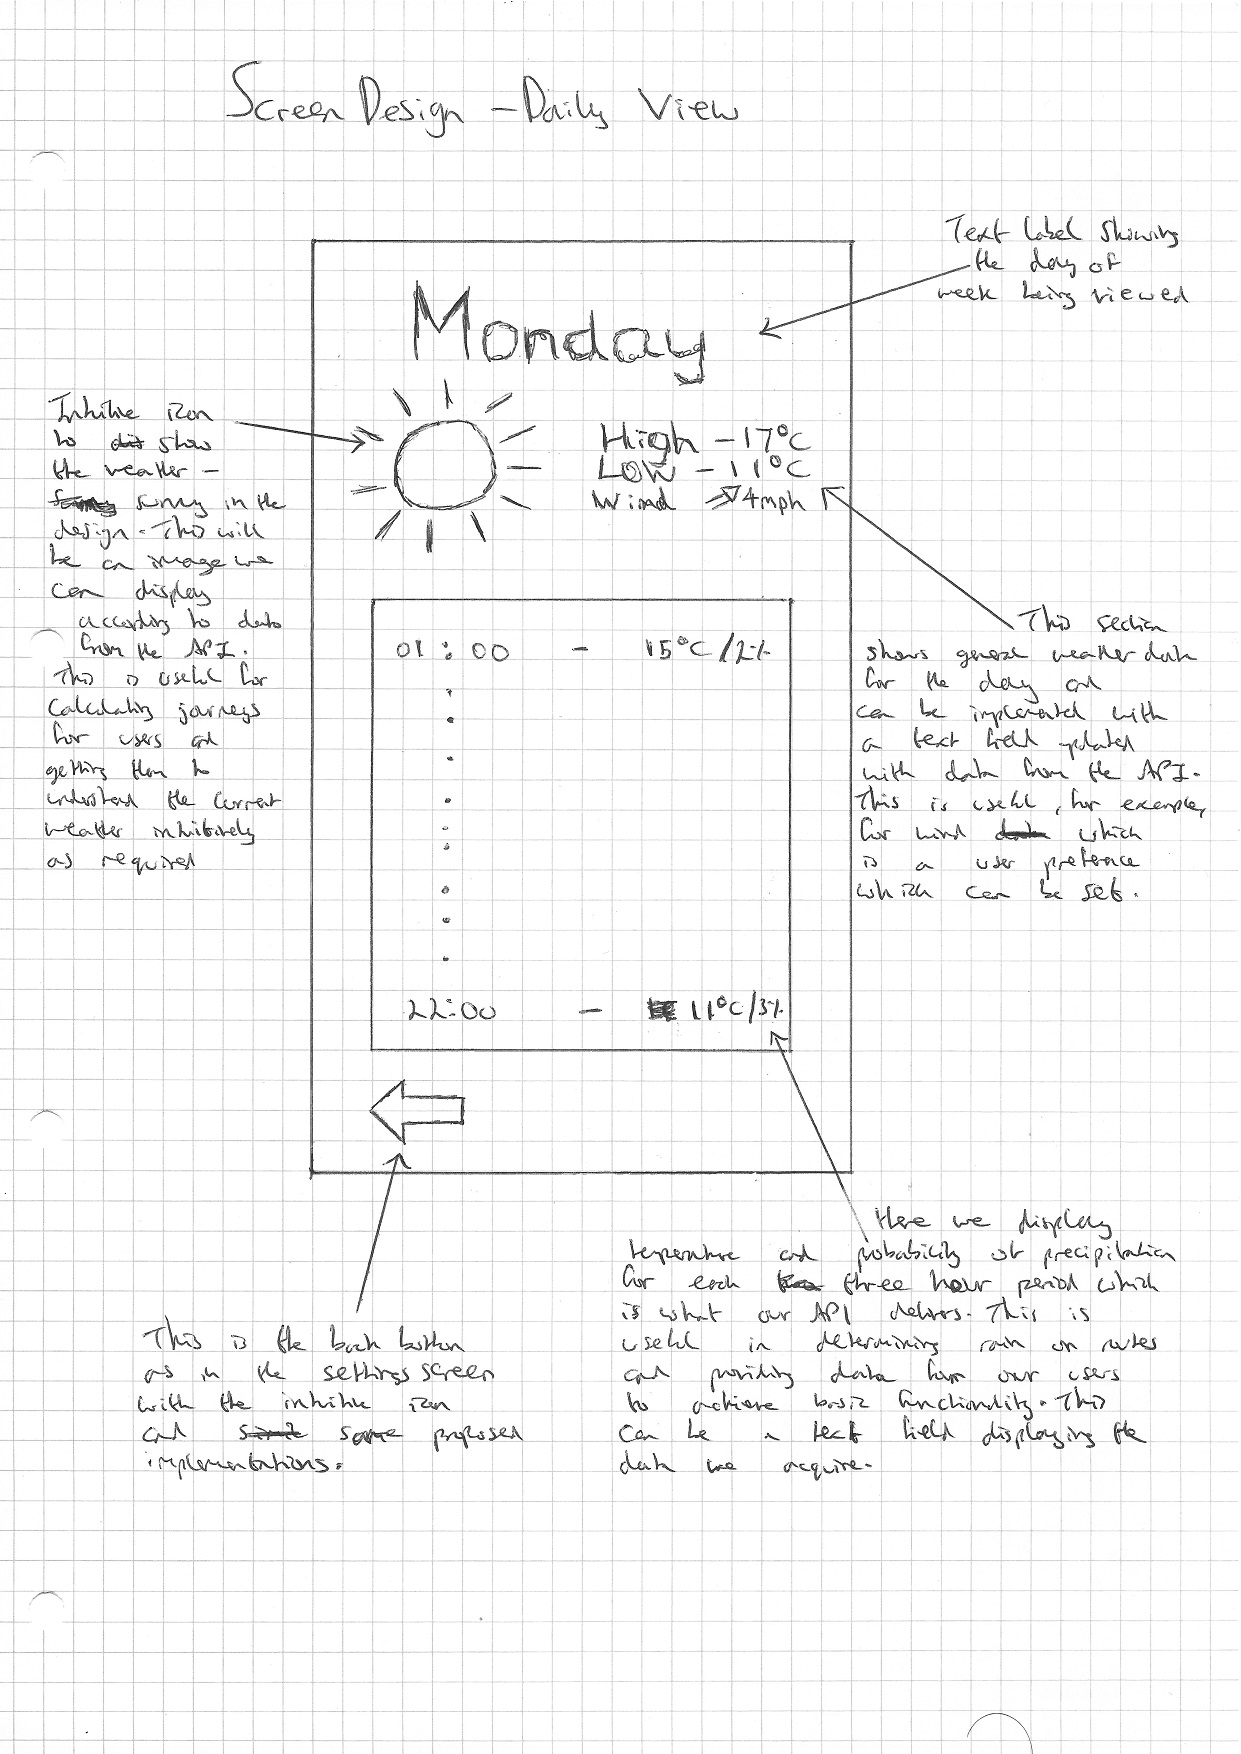 Screen Design - Daily View
Text label showing
the day of
week being viewed
Monday
High - 17°C
Low - 11°C
Wind 4mph
Intuitive icon
to show
the weather -
sunny in the
design. This will
be an image we
can display
according to data
from the API.
This is useful for
calculating journeys
for users and
getting them to
understand the current
weather intuitively
as required
This section
shows general weather data
for the day and
can be implemented with
a text field updated
with data from the API.
This is useful, for example,
for wind which
is a user preference
which can be set.
01:00 - 15°C/2%
22:00 - 11°C/3%
Here we display
temperature and probability of precipitation
for each three hour period which
is what our API delivers. This is
useful in determining rain on routes
and providing data for our users
to achieve basic functionality. This
can be a text field displaying the
data we acquire.
This is the back button
as in the settings screen
with the intuitive icon
and same proposed
implementations.